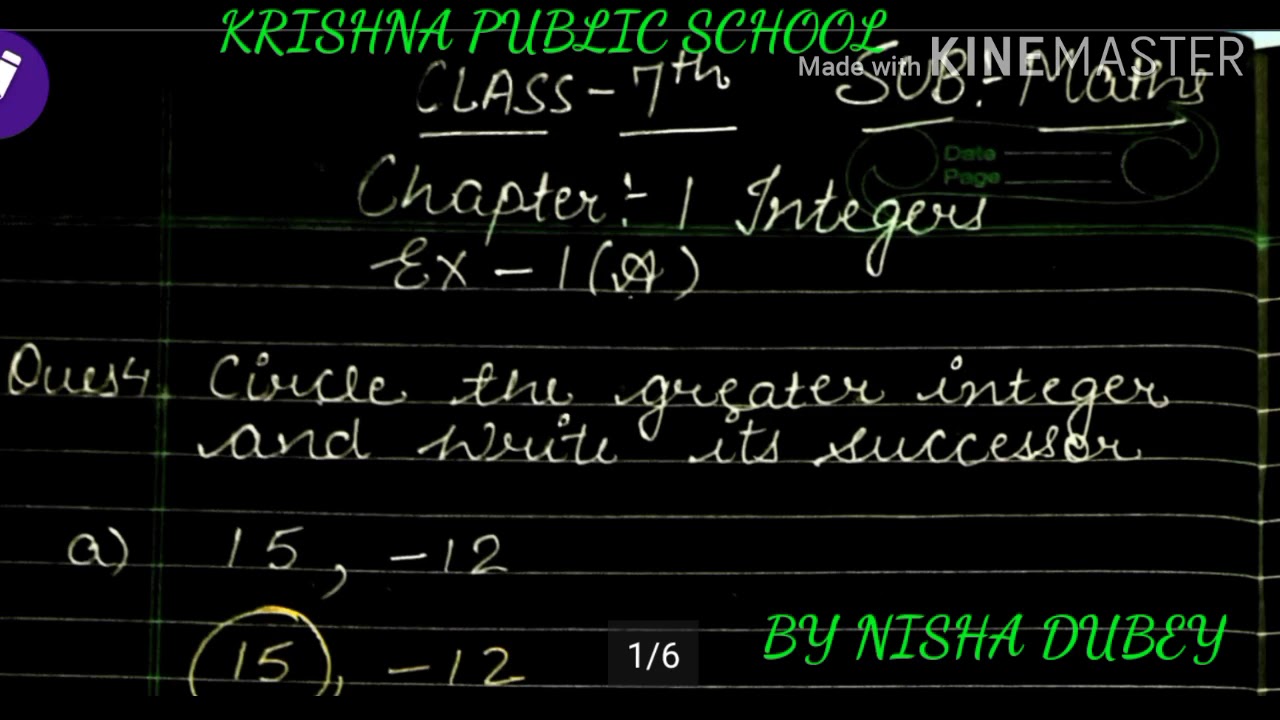 KRISHNA PUBLIC SCHOOL
Made with KINEMASTER
CLASS - 7th SUB:- Maths
Date
Page
Chapter:- 1 Integers
Ex - 1(A)
Ques4 Circle the greater integer
and write its successor
a) 15, -12
15, -12
1/6
BY NISHA DUBEY